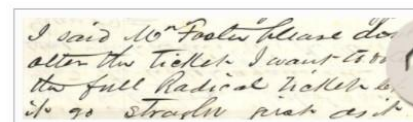 I said Mr Foster please do
alter the ticket I want to
the full Radical ticket
it go straight just as it